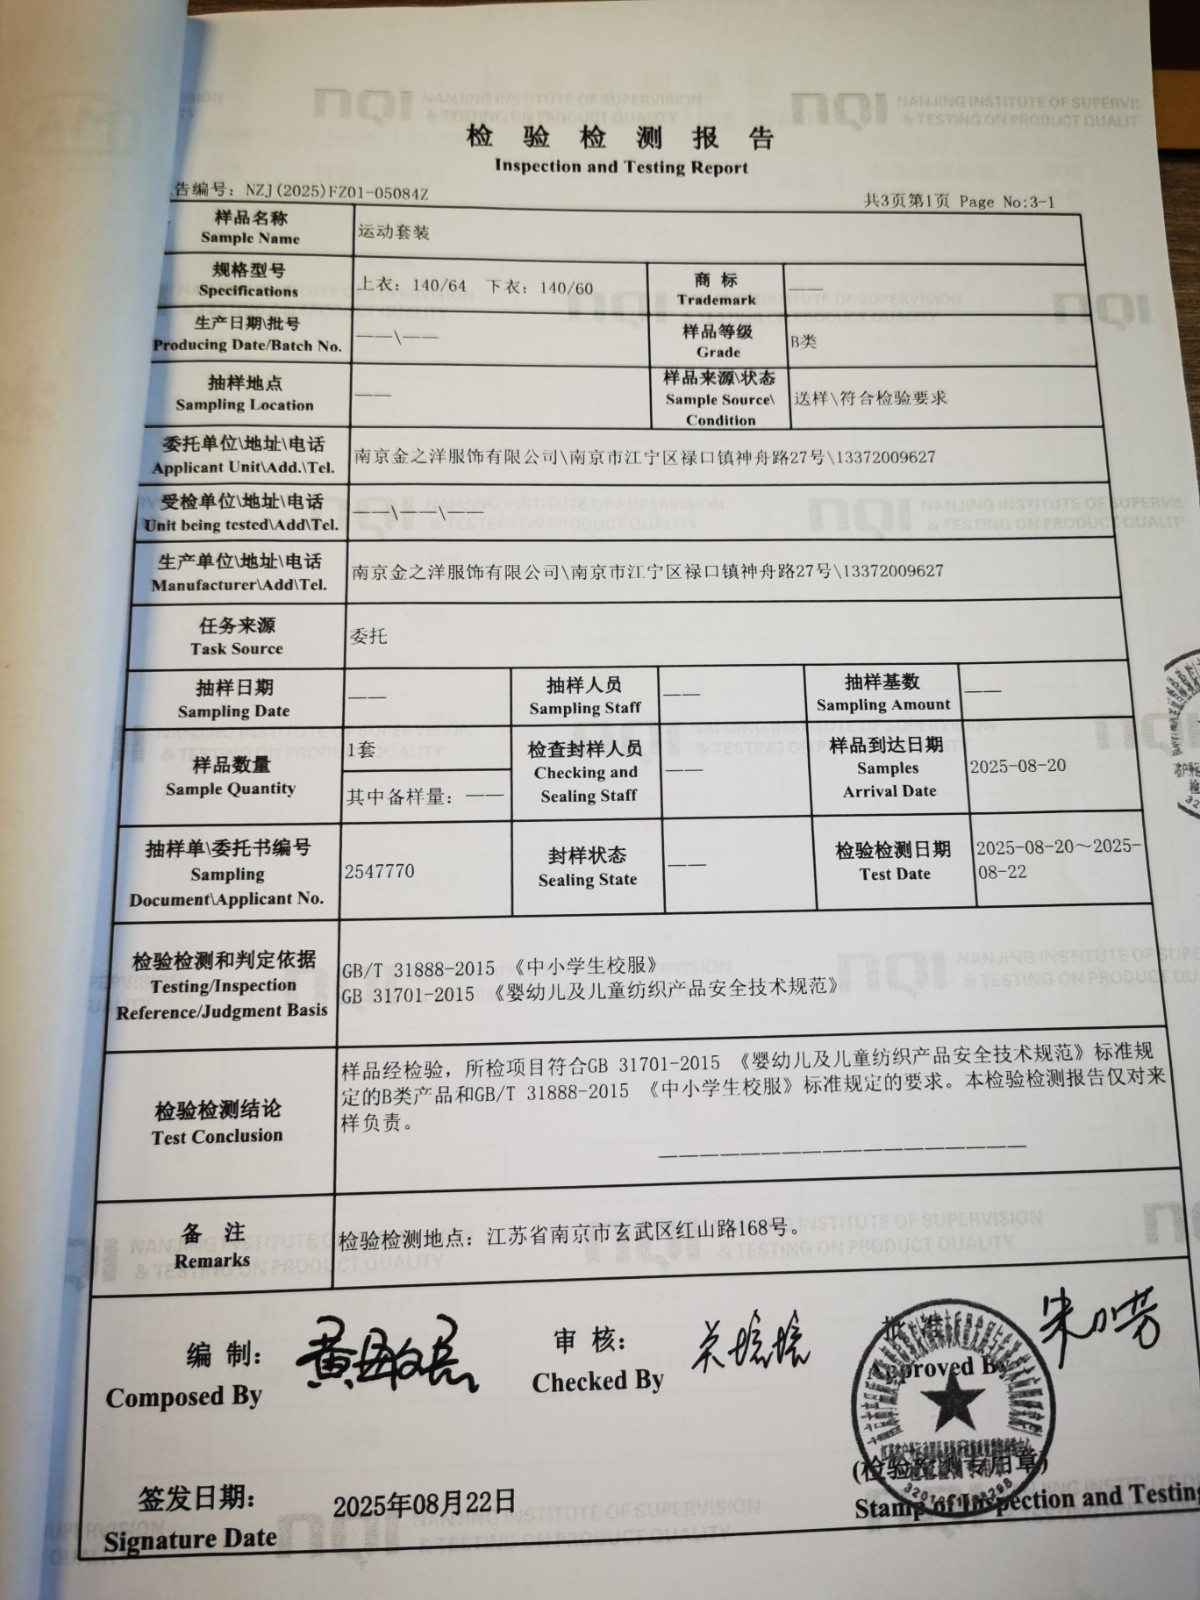 NQI NANJING INSTITUTE OF SUPERVISION
& TESTING ON PRODUCT QUALITY
检验检测报告
Inspection and Testing Report
告编号: NZJ(2025)FZ01-05084Z
共3页第1页 Page No:3-1
样品名称
Sample Name
运动套装
规格型号
Specifications
上衣: 140/64 下衣: 140/60
商 标
Trademark
——
生产日期\批号
Producing Date/Batch No.
——\——
样品等级
Grade
B类
抽样地点
Sampling Location
——
样品来源\状态
Sample Source\
Condition
送样\符合检验要求
委托单位\地址\电话
Applicant Unit\Add.\Tel.
南京金之洋服饰有限公司\南京市江宁区禄口镇神舟路27号\13372009627
受检单位\地址\电话
Unit being tested\Add\Tel.
——\——\——
生产单位\地址\电话
Manufacturer\Add\Tel.
南京金之洋服饰有限公司\南京市江宁区禄口镇神舟路27号\13372009627
任务来源
Task Source
委托
抽样日期
Sampling Date
——
抽样人员
Sampling Staff
——
抽样基数
Sampling Amount
——
样品数量
Sample Quantity
1套
其中备样量: ——
检查封样人员
Checking and
Sealing Staff
——
样品到达日期
Samples
Arrival Date
2025-08-20
抽样单\委托书编号
Sampling
Document\Applicant No.
2547770
封样状态
Sealing State
——
检验检测日期
Test Date
2025-08-20～2025-
08-22
检验检测和判定依据
Testing/Inspection
Reference/Judgment Basis
GB/T 31888-2015 《中小学生校服》
GB 31701-2015 《婴幼儿及儿童纺织产品安全技术规范》
检验检测结论
Test Conclusion
样品经检验，所检项目符合GB 31701-2015 《婴幼儿及儿童纺织产品安全技术规范》标准规
定的B类产品和GB/T 31888-2015 《中小学生校服》标准规定的要求。本检验检测报告仅对来
样负责。
备 注
Remarks
检验检测地点: 江苏省南京市玄武区红山路168号。
编 制:
Composed By
审 核:
Checked By
批 准
Approved By
(检验检测专用章)
Stamp of Inspection and Testing
签发日期:
Signature Date
2025年08月22日